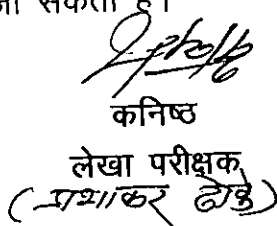 जा सकता है।
कनिष्ठ
लेखा परीक्षक
(प्रभाकर ढोके)